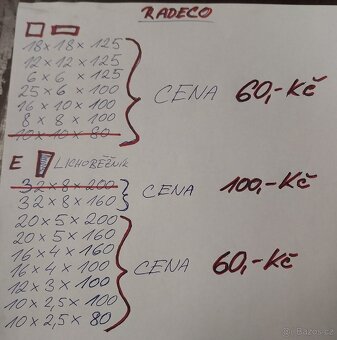 RADECO
18 × 18 × 125
12 × 12 × 125
6 × 6 × 125
25 × 6 × 100
16 × 10 × 100
8 × 8 × 100
10 × 10 × 80
CENA 60,-Kč
E LICHOBĚŽNÍK
32 × 8 × 200
32 × 8 × 160
CENA 100,-Kč
20 × 5 × 200
20 × 5 × 160
16 × 4 × 160
16 × 4 × 100
12 × 3 × 100
10 × 2,5 × 100
10 × 2,5 × 80
CENA 60,-Kč
Bazos.cz